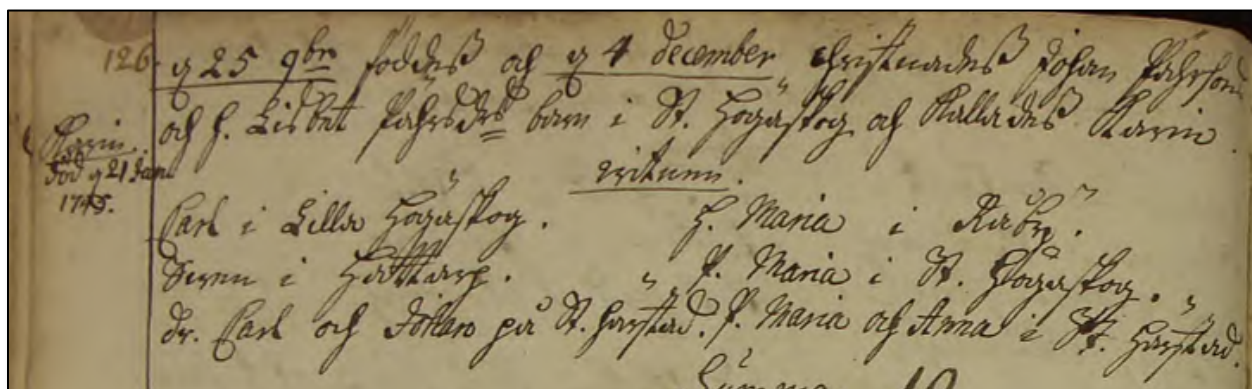 126. d 25 9br föddes och d 4 december christnades Johan Pährsons
och h. Lisbet Pährsdrs barn i St. Högaskog och Kallades Karin.
Karin.
död d 21 Jan.
1745.
witnen.
Carl i Lilla Högaskog. h. Maria i Råby.
Swen i Hattarp. P. Maria i St. Högaskog.
dr. Carl och Johan på St. Harstad. P. Maria och Anna i St. Harstad.
Summa 10